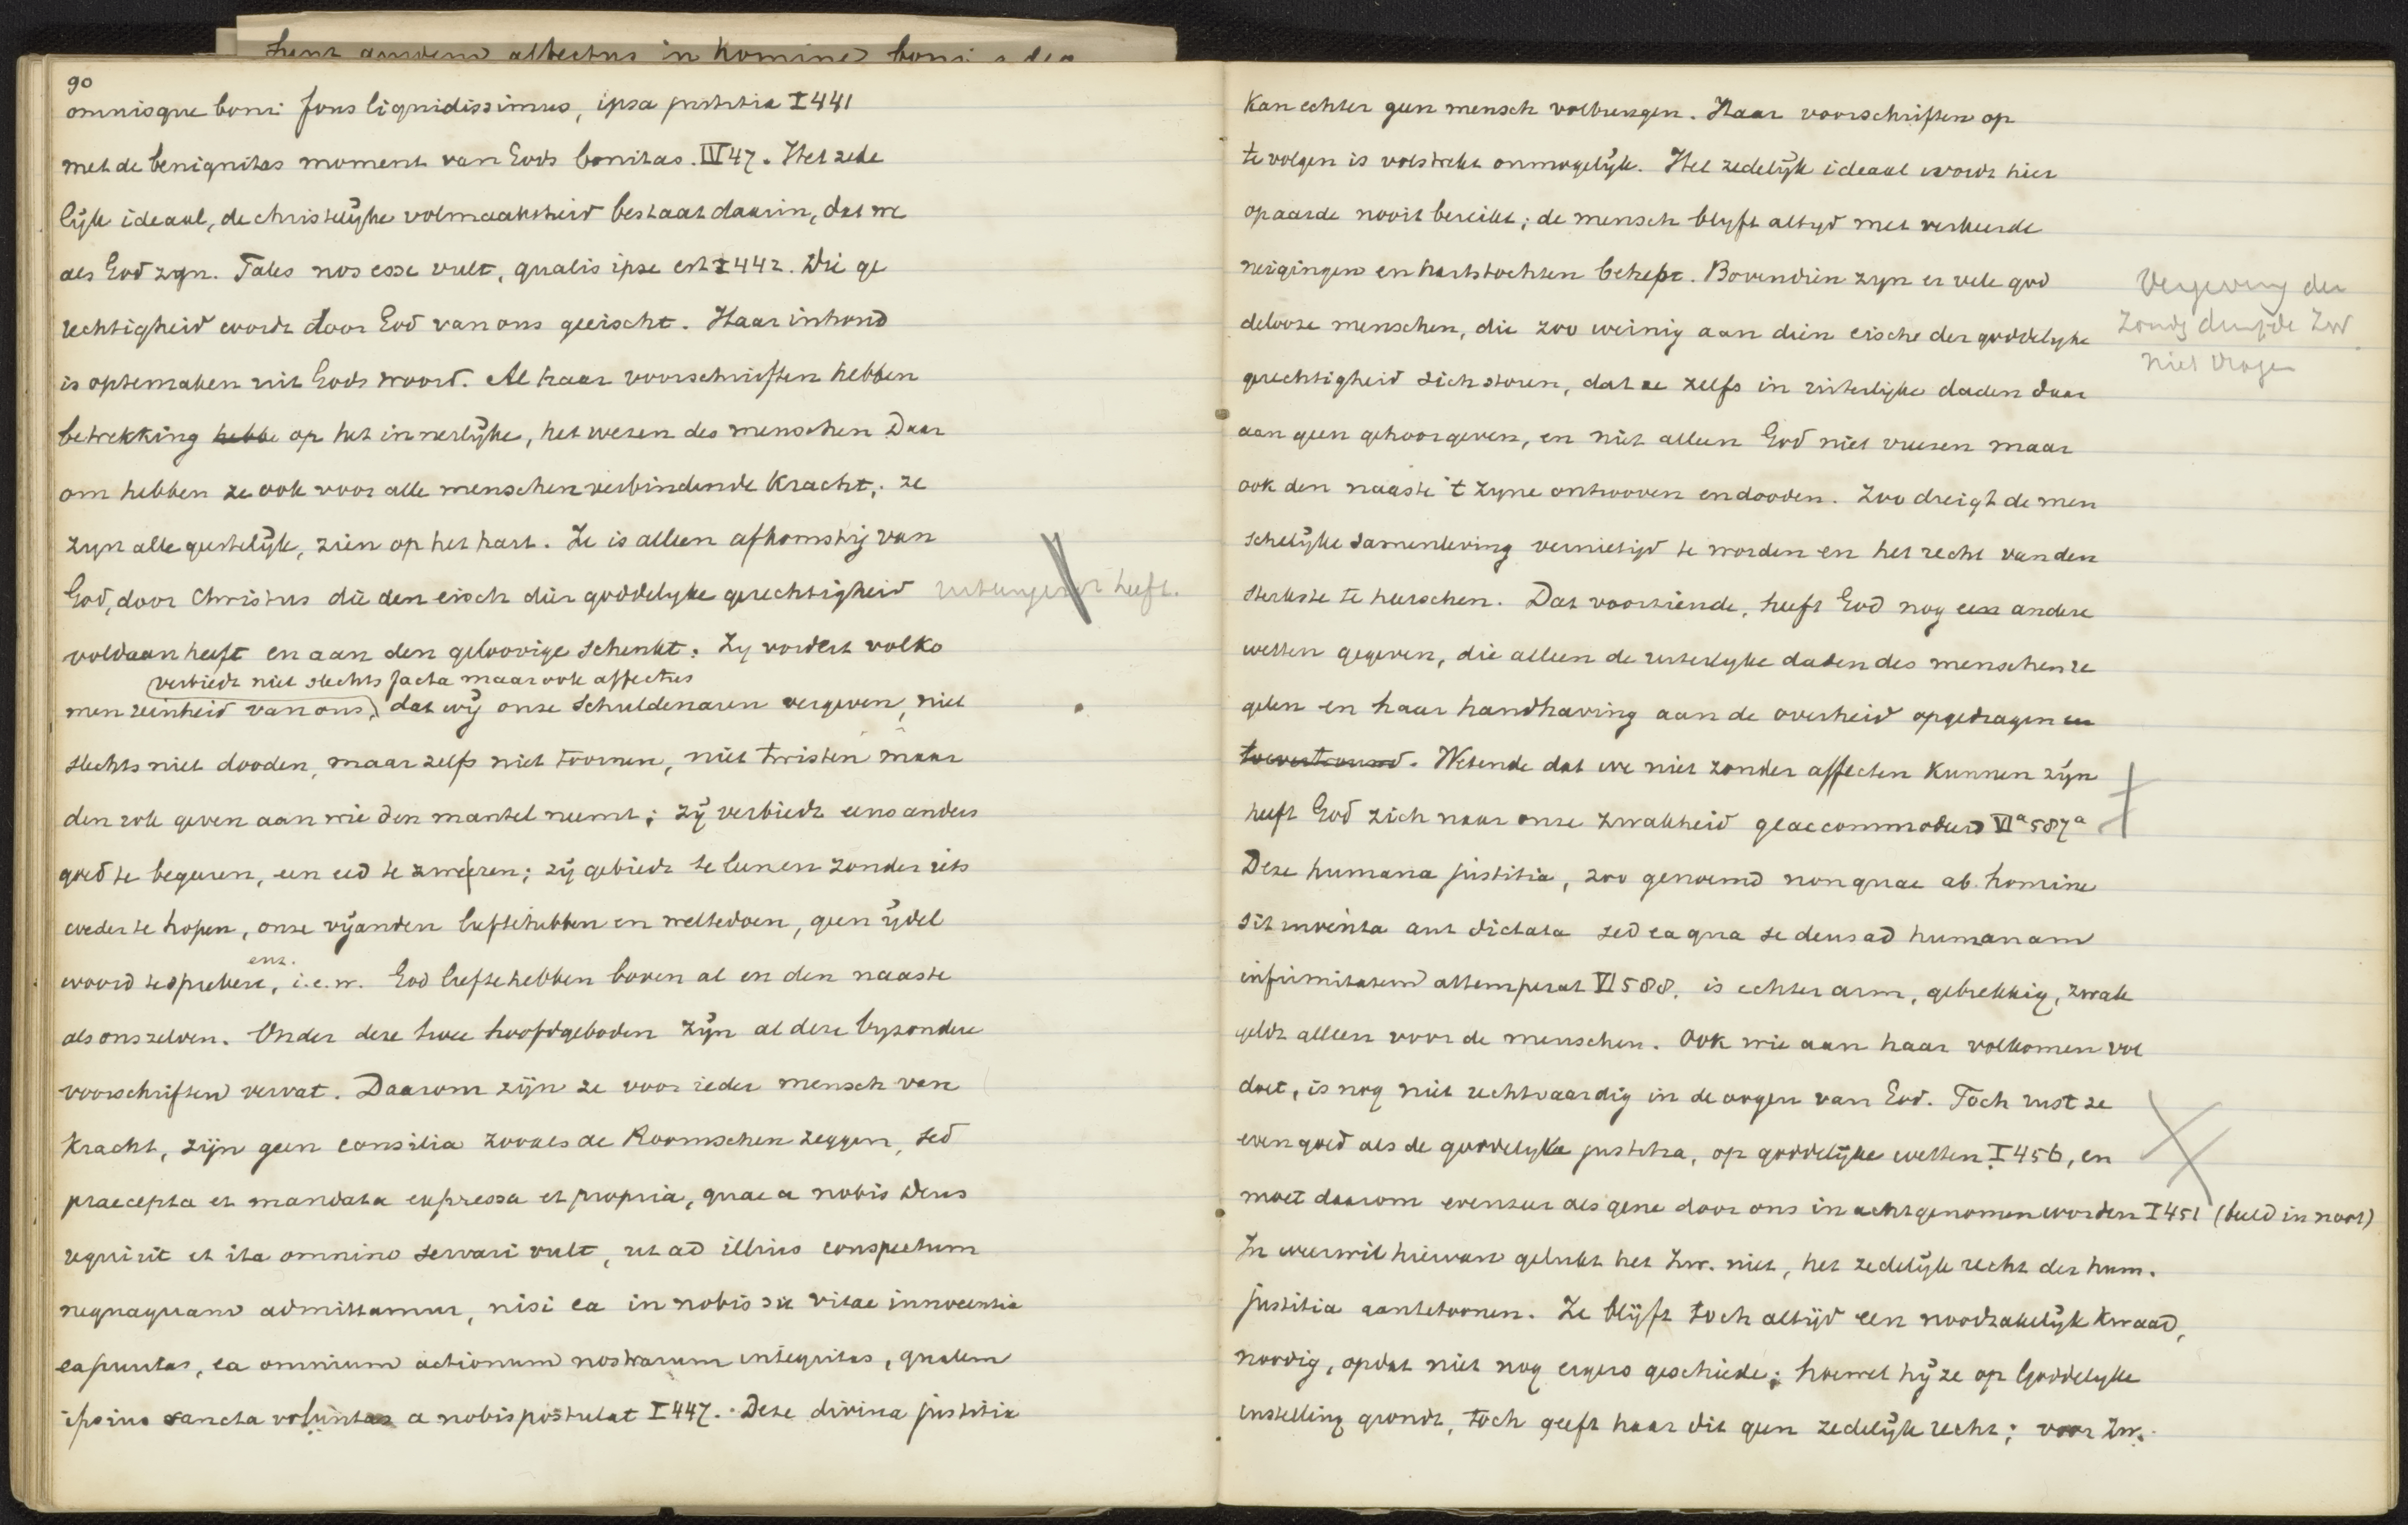 90
omnisque boni fons liquidissimus, ipsa justitia I 441
met de benignitas moment van Gods bonitas. IV 47. Het zede
lijk ideaal, de christelijke volmaaktheid bestaat daarin, dat we
als God zyn. Tales nos esse vult, qualis ipse est I 442. Die ge
rechtigheid wordt door God van ons geeischt. Haar inhoud
is optemaken uit Gods woord. Al haar voorschriften hebben
betrekking hebbe op het innerlijke, het wezen des menschen Daar
om hebben ze ook voor alle menschen verbindende kracht; ze
zyn alle geestelijk, zien op het hart. Ze is alleen afkomstig van
God, door Christus die den eisch dier goddelyke gerechtigheid
heeft.
voldaan heeft en aan den geloovige schenkt. Zy vordert volko
verbiedt niet slechts facta maar ook affectus
men reinheid van ons, dat wij onze schuldenaren vergeven, niet
slechts niet dooden, maar zelfs niet toornen, niet twisten maar
den rok geven aan wie den mantel neemt; zij verbiedt eens anders
goed te begeeren, een eed te zweren; zij gebiedt te leenen zonder iets
weder te hopen, onze vijanden liefte hebben en weltedoen, geen ijdel
enz.
woord te spreken, i.e.w. God liefte hebben boven al en den naaste
als ons zelven. Onder deze twee hoofdgeboden zijn al deze byzondere
voorschriften vervat. Daarom zijn ze voor ieder mensch van
kracht, zijn geen consilia zooals de Roomschen zeggen, sed
praecepta et mandata expressa et propria, quae a nobis Deus
requirit et ita omnino servari vult, ut ad illius conspectum
nequaquam admittamur, nisi ea in nobis sit vitae innocentia
ea puritas, ea omnium actionum nostrarum integritas, qualem
ipsius sancta voluntas a nobis postulat I 447. Deze divina justitia
kan echter geen mensch volbrengen. Haar voorschriften op
te volgen is volstrekt onmogelijk. Het zedelijk ideaal wordt hier
op aarde nooit bereikt; de mensch blyft altyd met verkeerde
neigingen en hartstochten behept. Bovendien zyn er vele god
delooze menschen, die zoo weinig aan dien eische der goddelyke
gerechtigheid zich storen, dat ze zelfs in uiterlijke daden daar
aan geen gehoor geven, en niet alleen God niet vreezen maar
ook den naaste 't zyne ontrooven en dooden. Zoo dreigt de men
schelijke samenleving vernietigd te worden en het recht van den
sterkste te heerschen. Dat voorziende, heeft God nog een andere
wetten gegeven, die alleen de uiterlyke daden des menschen re
gelen en haar handhaving aan de overheid opgedragen en
toevertrouwd. Wetende dat we niet zonder affecten kunnen zijn
heeft God zich naar onze zwakheid geaccommodeerd VIa 587a
Deze humana justitia, zoo genoemd non quae ab homine
sit inventa aut dictata sed ea qua se deus ad humanam
infirmitatem attemperat VI 588. is echter arm, gebrekkig, zwak
geldt alleen voor de menschen. Ook wie aan haar volkomen vol
doet, is nog niet rechtvaardig in de oogen van God. Toch rust ze
even goed als de goddelyke justitia, op goddelijke wetten I 456, en
moet daarom evenzeer als gene door ons in acht genomen worden I 451 (beeld in noot)
In weerwil hiervan gelukt het Zw. niet, het zedelijk recht der hum.
justitia aantetoonen. Ze blijft toch altijd een noodzakelijk kwaad,
noodig, opdat niet nog ergers geschiede; hoewel hij ze op Goddelyke
instelling grondt, toch geeft haar dit geen zedelijk recht; voor Zw.
Vergeving der
Zonde durfde Zw
niet vragen